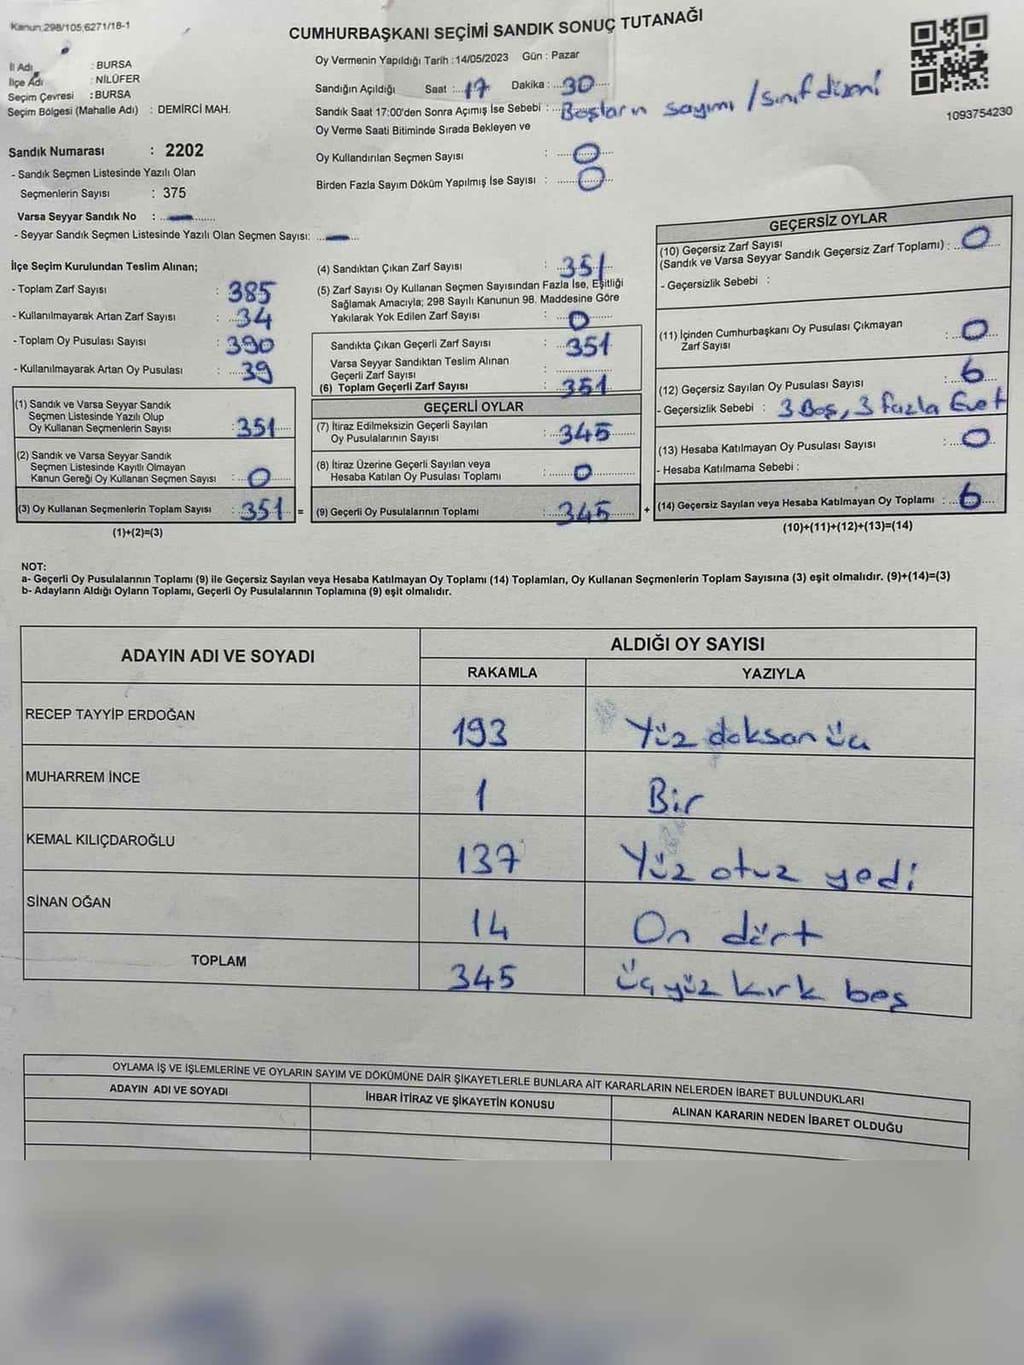 Kanun,298/105,6271/18-1
CUMHURBAŞKANI SEÇİMİ SANDIK SONUÇ TUTANAĞI
İl Adı : BURSA
İlçe Adı : NİLÜFER
Seçim Çevresi : BURSA
Seçim Bölgesi (Mahalle Adı) : DEMİRCİ MAH.
Sandık Numarası : 2202
- Sandık Seçmen Listesinde Yazılı Olan
Seçmenlerin Sayısı : 375
Varsa Seyyar Sandık No : -
- Seyyar Sandık Seçmen Listesinde Yazılı Olan Seçmen Sayısı: -
Oy Vermenin Yapıldığı Tarih : 14/05/2023 Gün : Pazar
Sandığın Açıldığı Saat : 17 Dakika : 30
Sandık Saat 17:00'den Sonra Açımış İse Sebebi : Boşların sayımı / sınıf düzeni
Oy Verme Saati Bitiminde Sırada Bekleyen ve
Oy Kullandırılan Seçmen Sayısı : 0
Birden Fazla Sayım Döküm Yapılmış İse Sayısı : 0
1093754230
İlçe Seçim Kurulundan Teslim Alınan;
- Toplam Zarf Sayısı : 385
- Kullanılmayarak Artan Zarf Sayısı : 34
- Toplam Oy Pusulası Sayısı : 390
- Kullanılmayarak Artan Oy Pusulası : 39
(1) Sandık ve Varsa Seyyar Sandık
Seçmen Listesinde Yazılı Olup
Oy Kullanan Seçmenlerin Sayısı : 351
(2) Sandık ve Varsa Seyyar Sandık
Seçmen Listesinde Kayıtlı Olmayan
Kanun Gereği Oy Kullanan Seçmen Sayısı : 0
(3) Oy Kullanan Seçmenlerin Toplam Sayısı : 351 =
(1)+(2)=(3)
(4) Sandıktan Çıkan Zarf Sayısı : 351
(5) Zarf Sayısı Oy Kullanan Seçmen Sayısından Fazla İse, Eşitliği
Sağlamak Amacıyla; 298 Sayılı Kanunun 98. Maddesine Göre
Yakılarak Yok Edilen Zarf Sayısı : 0
Sandıkta Çıkan Geçerli Zarf Sayısı : 351
Varsa Seyyar Sandıktan Teslim Alınan
Geçerli Zarf Sayısı :
(6) Toplam Geçerli Zarf Sayısı : 351
GEÇERLİ OYLAR
(7) İtiraz Edilmeksizin Geçerli Sayılan
Oy Pusulalarının Sayısı : 345
(8) İtiraz Üzerine Geçerli Sayılan veya
Hesaba Katılan Oy Pusulası Toplamı : 0
(9) Geçerli Oy Pusulalarının Toplamı : 345 +
GEÇERSİZ OYLAR
(10) Geçersiz Zarf Sayısı
(Sandık ve Varsa Seyyar Sandık Geçersiz Zarf Toplamı) : 0
- Geçersizlik Sebebi :
(11) İçinden Cumhurbaşkanı Oy Pusulası Çıkmayan
Zarf Sayısı : 0
(12) Geçersiz Sayılan Oy Pusulası Sayısı : 6
- Geçersizlik Sebebi : 3 Boş, 3 fazla Evet
(13) Hesaba Katılmayan Oy Pusulası Sayısı : 0
- Hesaba Katılmama Sebebi :
(14) Geçersiz Sayılan veya Hesaba Katılmayan Oy Toplamı : 6
(10)+(11)+(12)+(13)=(14)
NOT:
a- Geçerli Oy Pusulalarının Toplamı (9) ile Geçersiz Sayılan veya Hesaba Katılmayan Oy Toplamı (14) Toplamları, Oy Kullanan Seçmenlerin Toplam Sayısına (3) eşit olmalıdır. (9)+(14)=(3)
b- Adayların Aldığı Oyların Toplamı, Geçerli Oy Pusulalarının Toplamına (9) eşit olmalıdır.
ADAYIN ADI VE SOYADI ALDIĞI OY SAYISI
RAKAMLA YAZIYLA
RECEP TAYYİP ERDOĞAN 193 Yüz doksan üç
MUHARREM İNCE 1 Bir
KEMAL KILIÇDAROĞLU 137 Yüz otuz yedi
SİNAN OĞAN 14 On dört
TOPLAM 345 üçyüz kırk beş
OYLAMA İŞ VE İŞLEMLERİNE VE OYLARIN SAYIM VE DÖKÜMÜNE DAİR ŞİKAYETLERLE BUNLARA AİT KARARLARIN NELERDEN İBARET BULUNDUKLARI
ADAYIN ADI VE SOYADI İHBAR İTİRAZ VE ŞİKAYETİN KONUSU ALINAN KARARIN NEDEN İBARET OLDUĞU